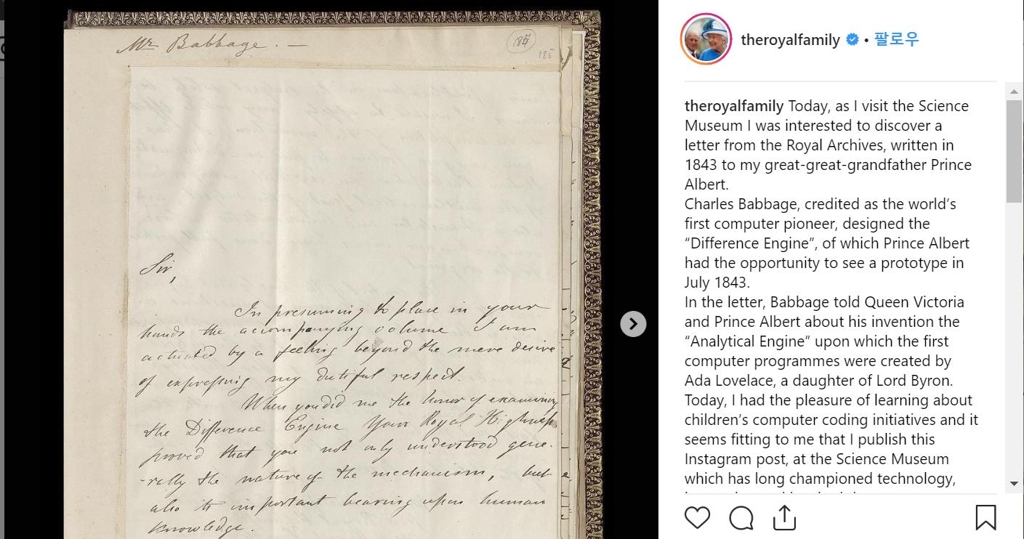 Mr Babbage. —
185
185
Sir,
In presuming to place in your
hands the accompanying volume I am
actuated by a feeling beyond the mere desire
of expressing my dutiful respect.
When you did me the honor of examining
the Difference Engine Your Royal Highness
proved that you not only understood gene-
-rally the nature of the mechanism, but
also its important bearing upon human
knowledge.
theroyalfamily • 팔로우
theroyalfamily Today, as I visit the Science
Museum I was interested to discover a
letter from the Royal Archives, written in
1843 to my great-great-grandfather Prince
Albert.
Charles Babbage, credited as the world’s
first computer pioneer, designed the
“Difference Engine”, of which Prince Albert
had the opportunity to see a prototype in
July 1843.
In the letter, Babbage told Queen Victoria
and Prince Albert about his invention the
“Analytical Engine” upon which the first
computer programmes were created by
Ada Lovelace, a daughter of Lord Byron.
Today, I had the pleasure of learning about
children’s computer coding initiatives and it
seems fitting to me that I publish this
Instagram post, at the Science Museum
which has long championed technology,